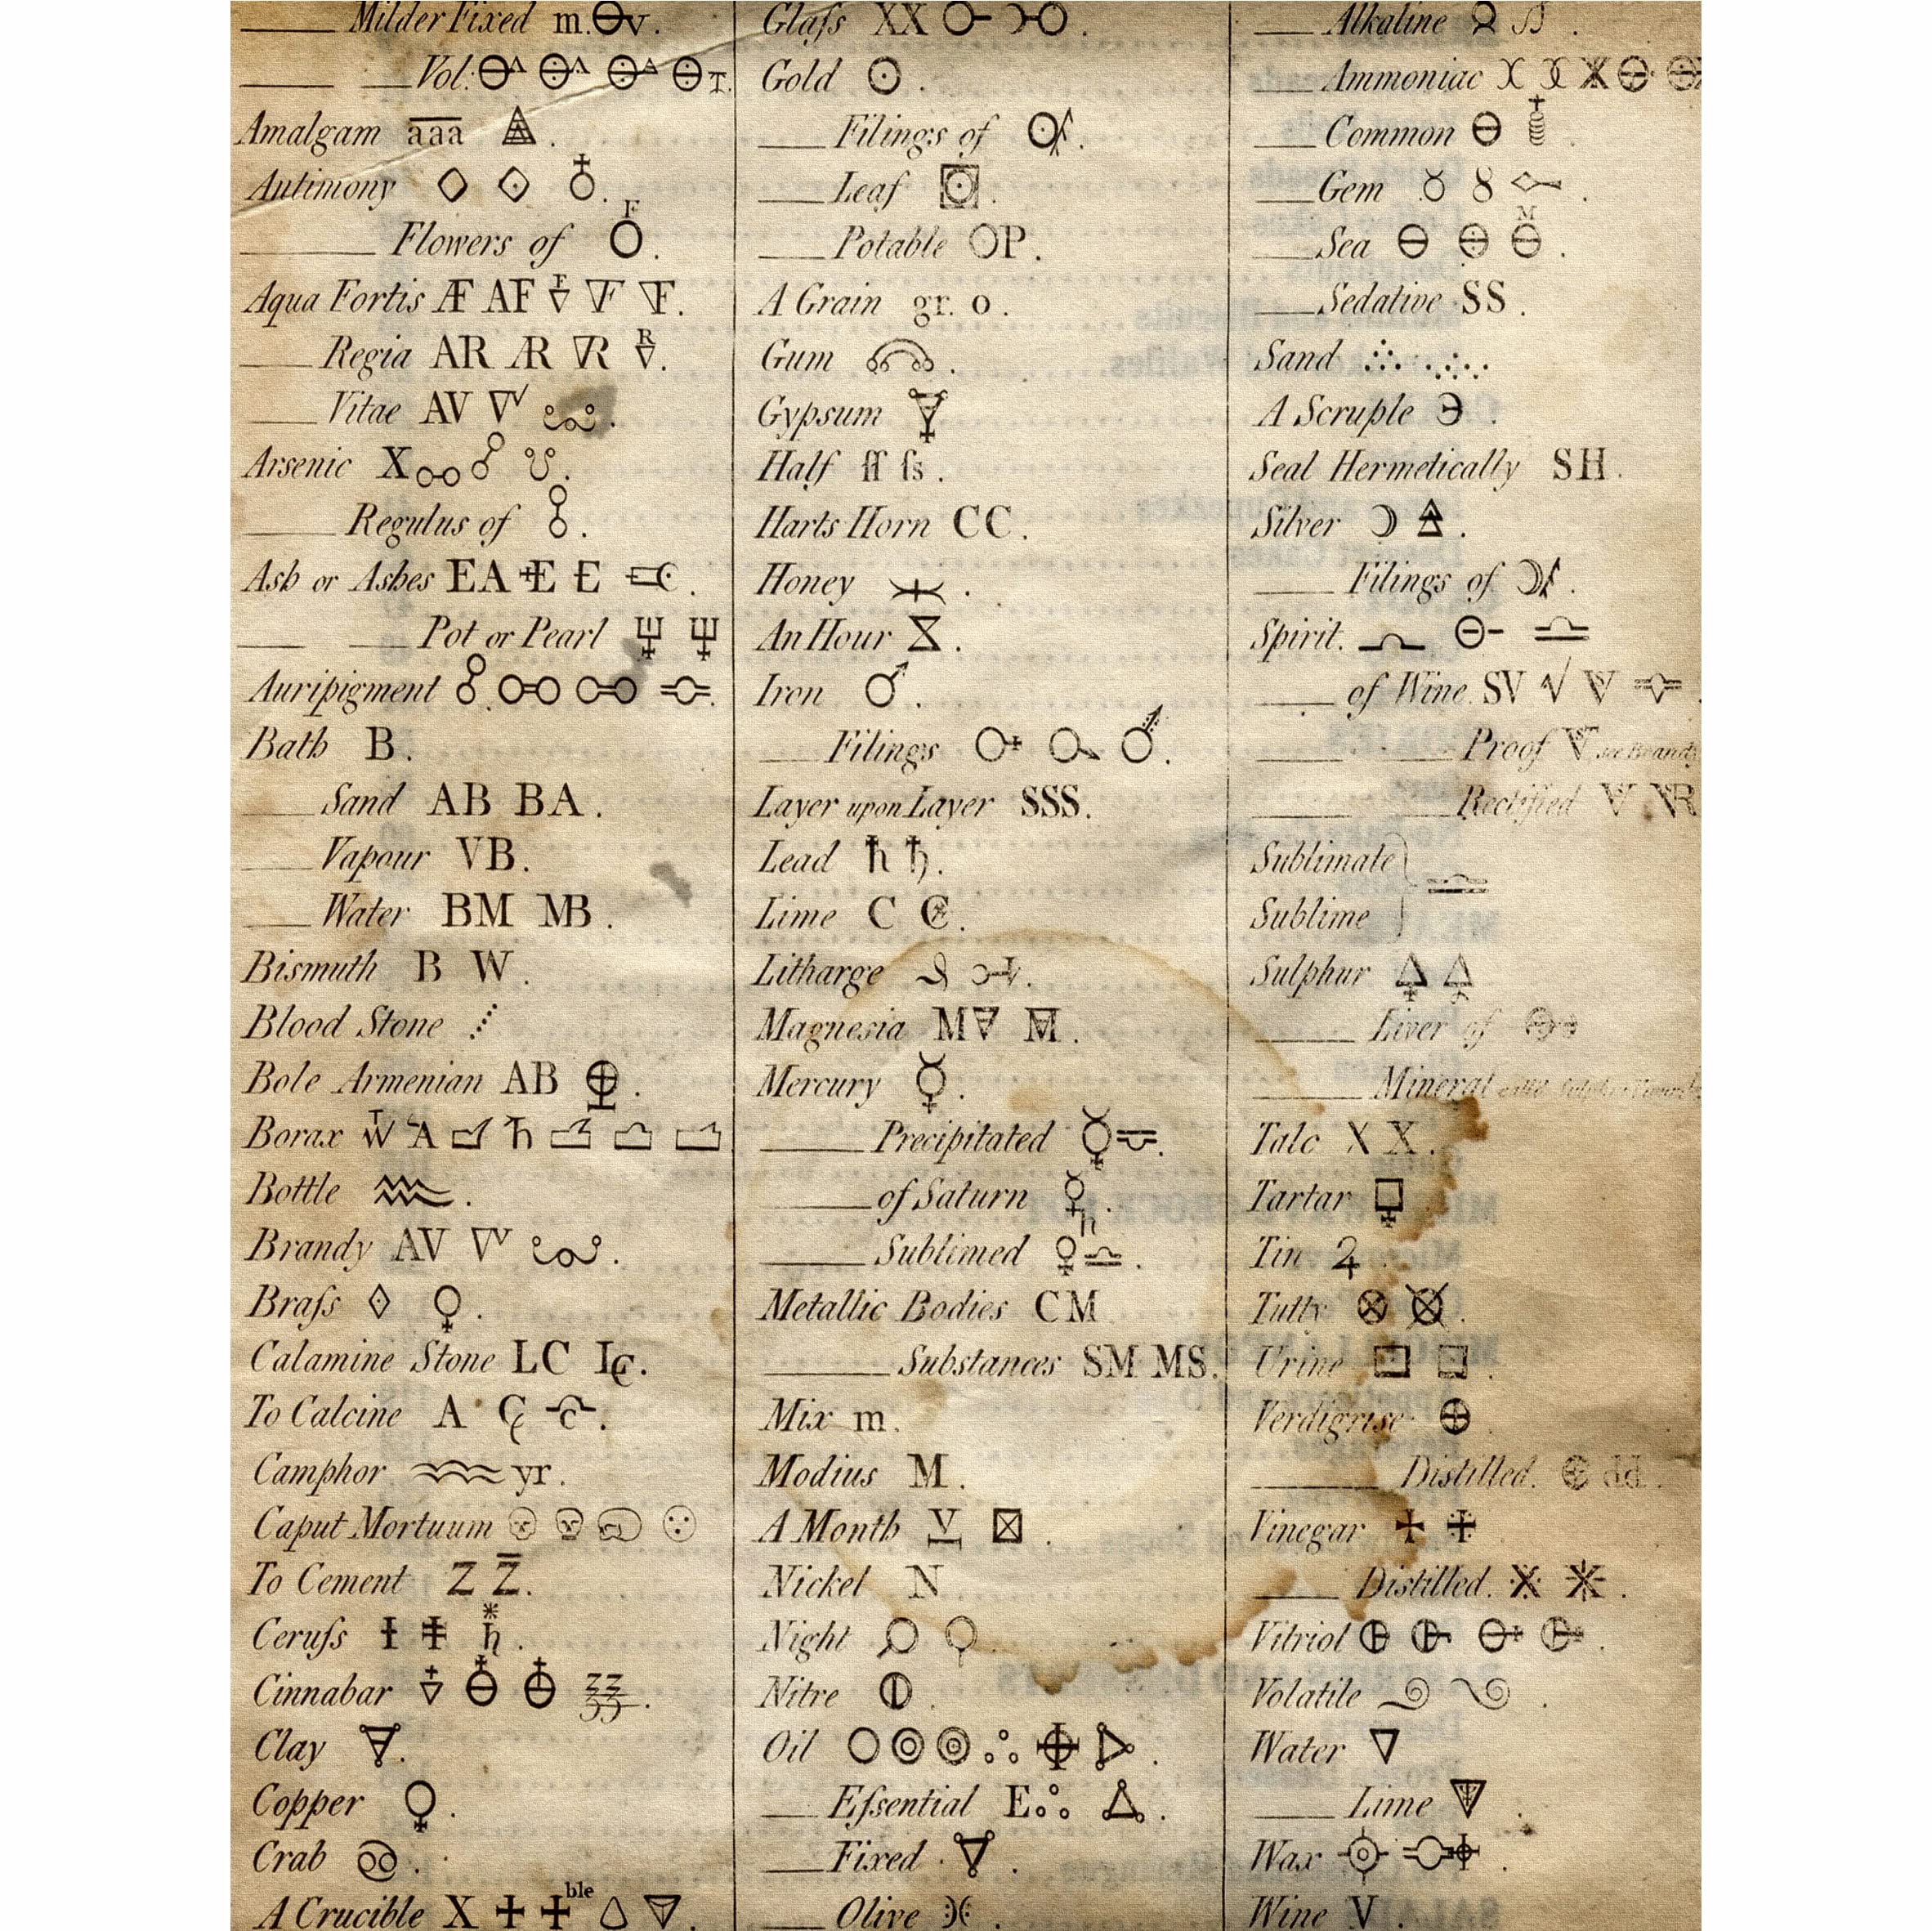 Milder Fixed m.
Vol:
Amalgam aaa
Antimony
Flowers of F
Aqua Fortis Æ AF
Regia AR
Vitae AV
Arsenic X
Regulus of
Ash or Ashes EA E E
Pot or Pearl
Auripigment
Bath B.
Sand AB BA.
Vapour VB.
Water BM MB.
Bismuth B W.
Blood Stone
Bole Armenian AB
Borax
Bottle
Brandy AV
Braſs
Calamine Stone LC
To Calcine A C
Camphor yr.
Caput Mortuum
To Cement Z Z.
Ceruſs
Cinnabar
Clay
Copper
Crab
A Crucible X ble
Glaſs XX
Gold
Filings of
Leaf
Potable OP.
A Grain gr. o.
Gum
Gypsum
Half ſſ ſs.
Harts Horn CC.
Honey
An Hour
Iron
Filings
Layer upon Layer SSS.
Lead
Lime C
Litharge
Magnesia M
Mercury
Precipitated
of Saturn
Sublimed
Metallic Bodies CM
Substances SM MS.
Mix m.
Modius M.
A Month V
Nickel N
Night
Nitre
Oil
Eſsential E
Fixed
Olive
Alkaline
Ammoniac
Common
Gem
Sea M
Sedative SS.
Sand
A Scruple
Seal Hermetically SH.
Silver
Filings of
Spirit.
of Wine. SV
Proof see Brandy
Rectified
Sublimate
Sublime
Sulphur
Liver of
Mineral
Talc X X.
Tartar
Tin
Tutty
Urine
Verdigrise
Distilled. dd.
Vinegar
Distilled.
Vitriol
Volatile
Water
Lime
Wax
Wine V.